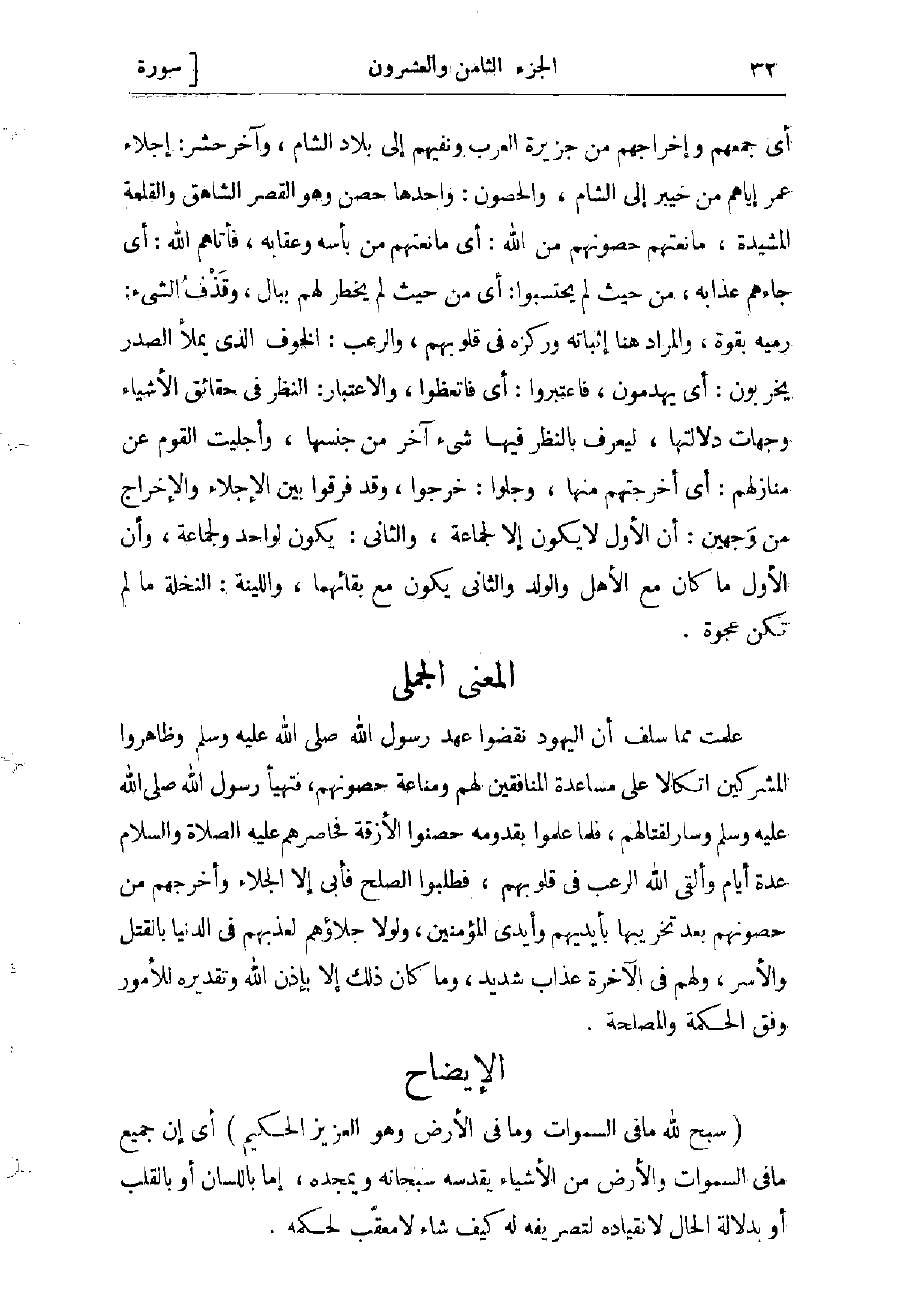 ٣٢ الجزء الثامن والعشرون [ سورة
أى جمعهم وإخراجهم من جزيرة العرب ونفيهم إلى بلاد الشام ، وآخر حشر : إجلاء
عمر إياهم من خيبر إلى الشام ، والحصون : واحدها حصن وهو القصر الشاهق والقلعة
المشيدة ، مانعتهم حصونهم من الله : أى مانعتهم من بأسه وعقابه ، فأتاهم الله : أى
جاءهم عذابه ، من حيث لم يحتسبوا : أى من حيث لم يخطر لهم ببال ، وقَذْفُ الشىء :
رميه بقوة ، والمراد هنا إثباته وركزه فى قلوبهم ، والرعب : الخوف الذى يملأ الصدر
يخربون : أى يهدمون ، فاعتبروا : أى فاتعظوا ، والاعتبار : النظر فى حقائق الأشياء
وجهات دلالتها ، ليعرف بالنظر فيها شىء آخر من جنسها ، وأجليت القوم عن
منازلهم : أى أخرجتهم منها ، وجلوا : خرجوا ، وقد فرقوا بين الإجلاء والإخراج
من وَجهين : أن الأول لايكون إلا لجماعة ، والثانى : يكون لواحد ولجماعة ، وأن
الأول ما كان مع الأهل والولد والثانى يكون مع بقائهما ، واللينة : النخلة ما لم
تكن عجوة .
المعنى الجملى
علمت مما سلف أن اليهود نقضوا عهد رسول الله صلى الله عليه وسلم وظاهروا
المشركين اتكالا على مساعدة المنافقين لهم ومناعة حصونهم ، فتهيأ رسول الله صلى الله
عليه وسلم وسار لقتالهم ، فلما علموا بقدومه حصنوا الأزقة فحاصرهم عليه الصلاة والسلام
عدة أيام وألقى الله الرعب فى قلوبهم ، فطلبوا الصلح فأبى إلا الجلاء وأخرجهم من
حصونهم بعد تخريبها بأيديهم وأيدى المؤمنين ، ولولا جلاؤهم لعذبهم فى الدنيا بالقتل
والأسر ، ولهم فى الآخرة عذاب شديد ، وما كان ذلك إلا بإذن الله وتقديره للأمور
وفق الحكمة والمصلحة .
الإيضاح
( سبح لله مافى السموات وما فى الأرض وهو العزيز الحكيم ) أى إن جميع
مافى السموات والأرض من الأشياء يقدسه سبحانه ويمجده ، إما باللسان أو بالقلب
أو بدلالة الحال لانقياده لتصريفه له كيف شاء لامعقّب لحكمه .